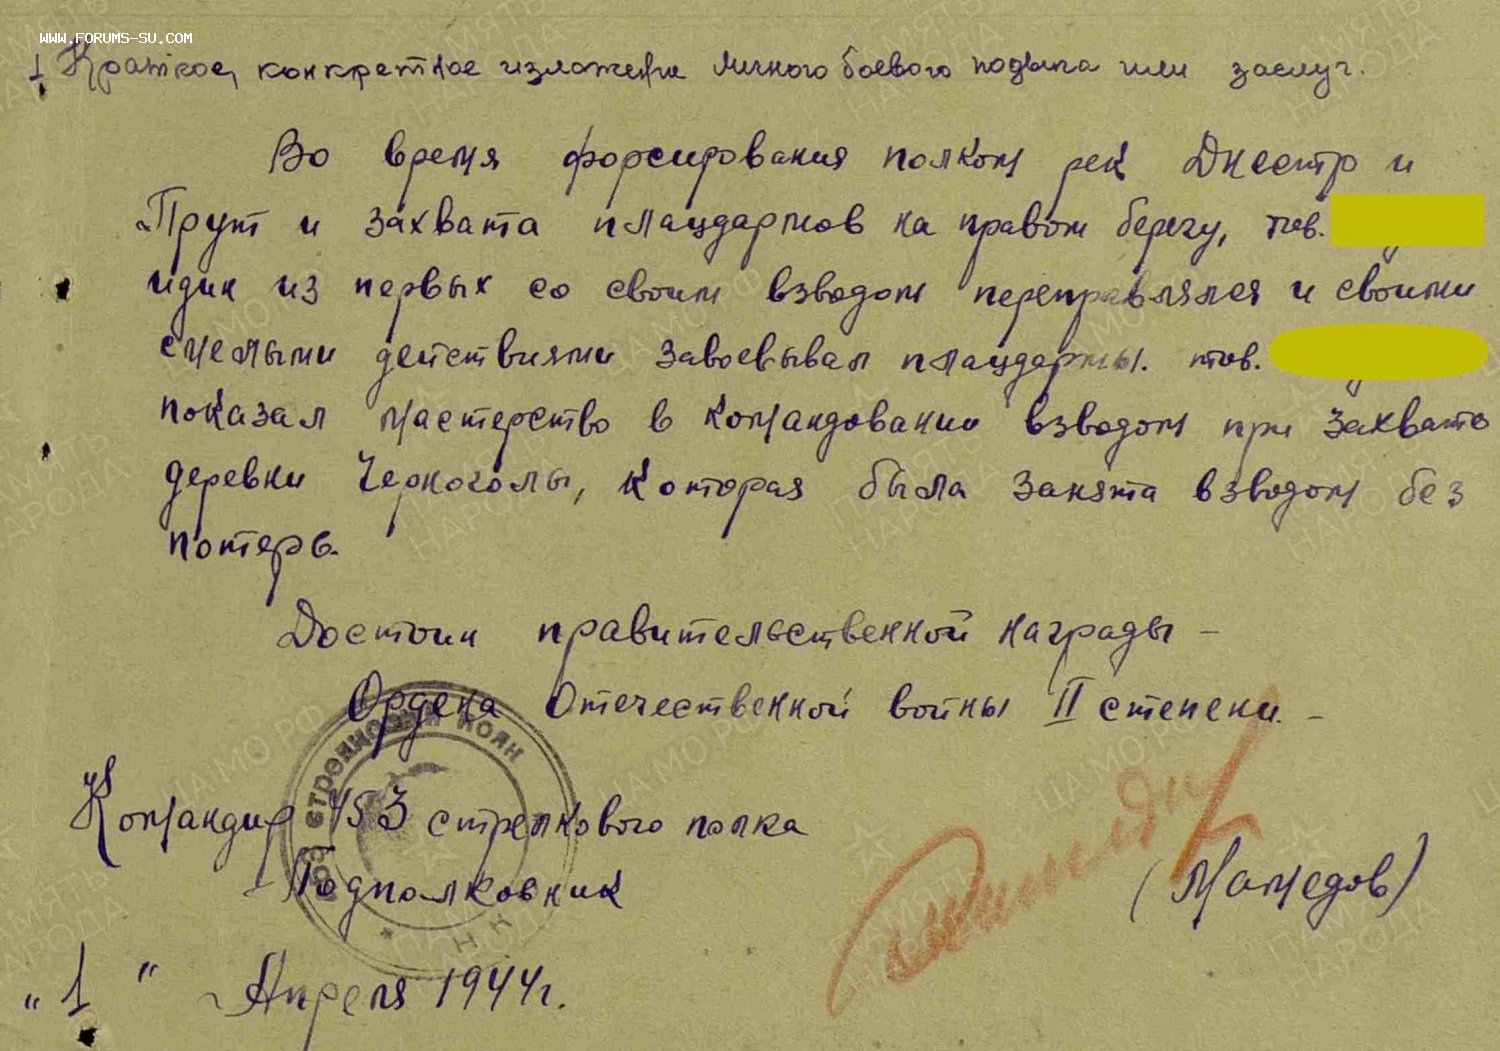 WWW.FORUMS-SU.COM
1 Краткое, конкретное изложение личного боевого подвига или заслуг.
Во время форсирования полком рек Днестр и
Прут и захвата плацдармов на правом берегу, тов.
идин из первых со своим взводом переправлялся и своими
смелыми действиями завоевывал плацдармы. тов.
показал мастерство в командовании взводом при захвате
деревни Черноголы, которая была занята взводом без
потерь.
Достоин правительственной награды –
Ордена Отечественной войны II степени. –
Командир 453 стрелкового полка
Подполковник (Мамедов)
„1" Апреля 1944г.